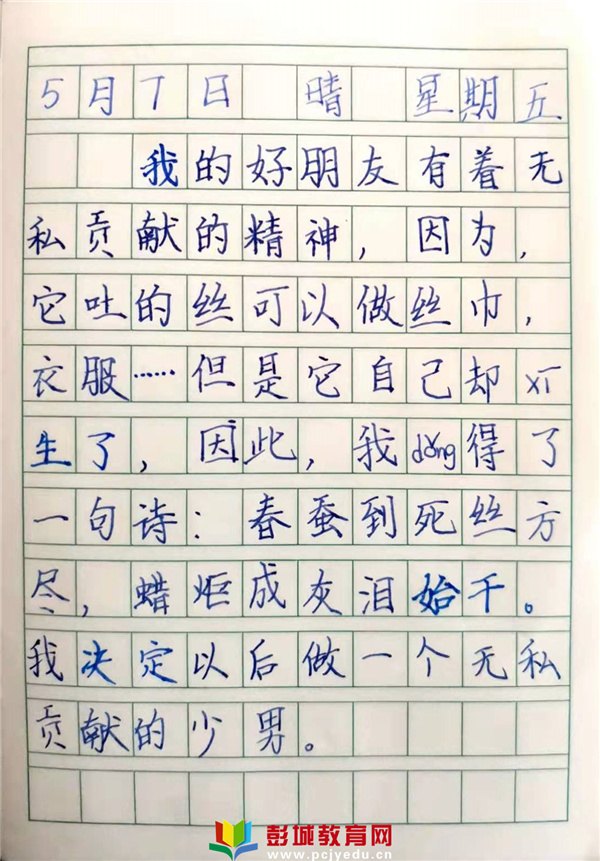 5月7日 晴 星期五
我的好朋友有着无
私贡献的精神，因为，
它吐的丝可以做丝巾，
衣服……但是它自己却xī
生了，因此，我dǒng得了
一句诗：春蚕到死丝方
尽，蜡炬成灰泪始干。
我决定以后做一个无私
贡献的少男。
彭城教育网
www.pcjyedu.cn